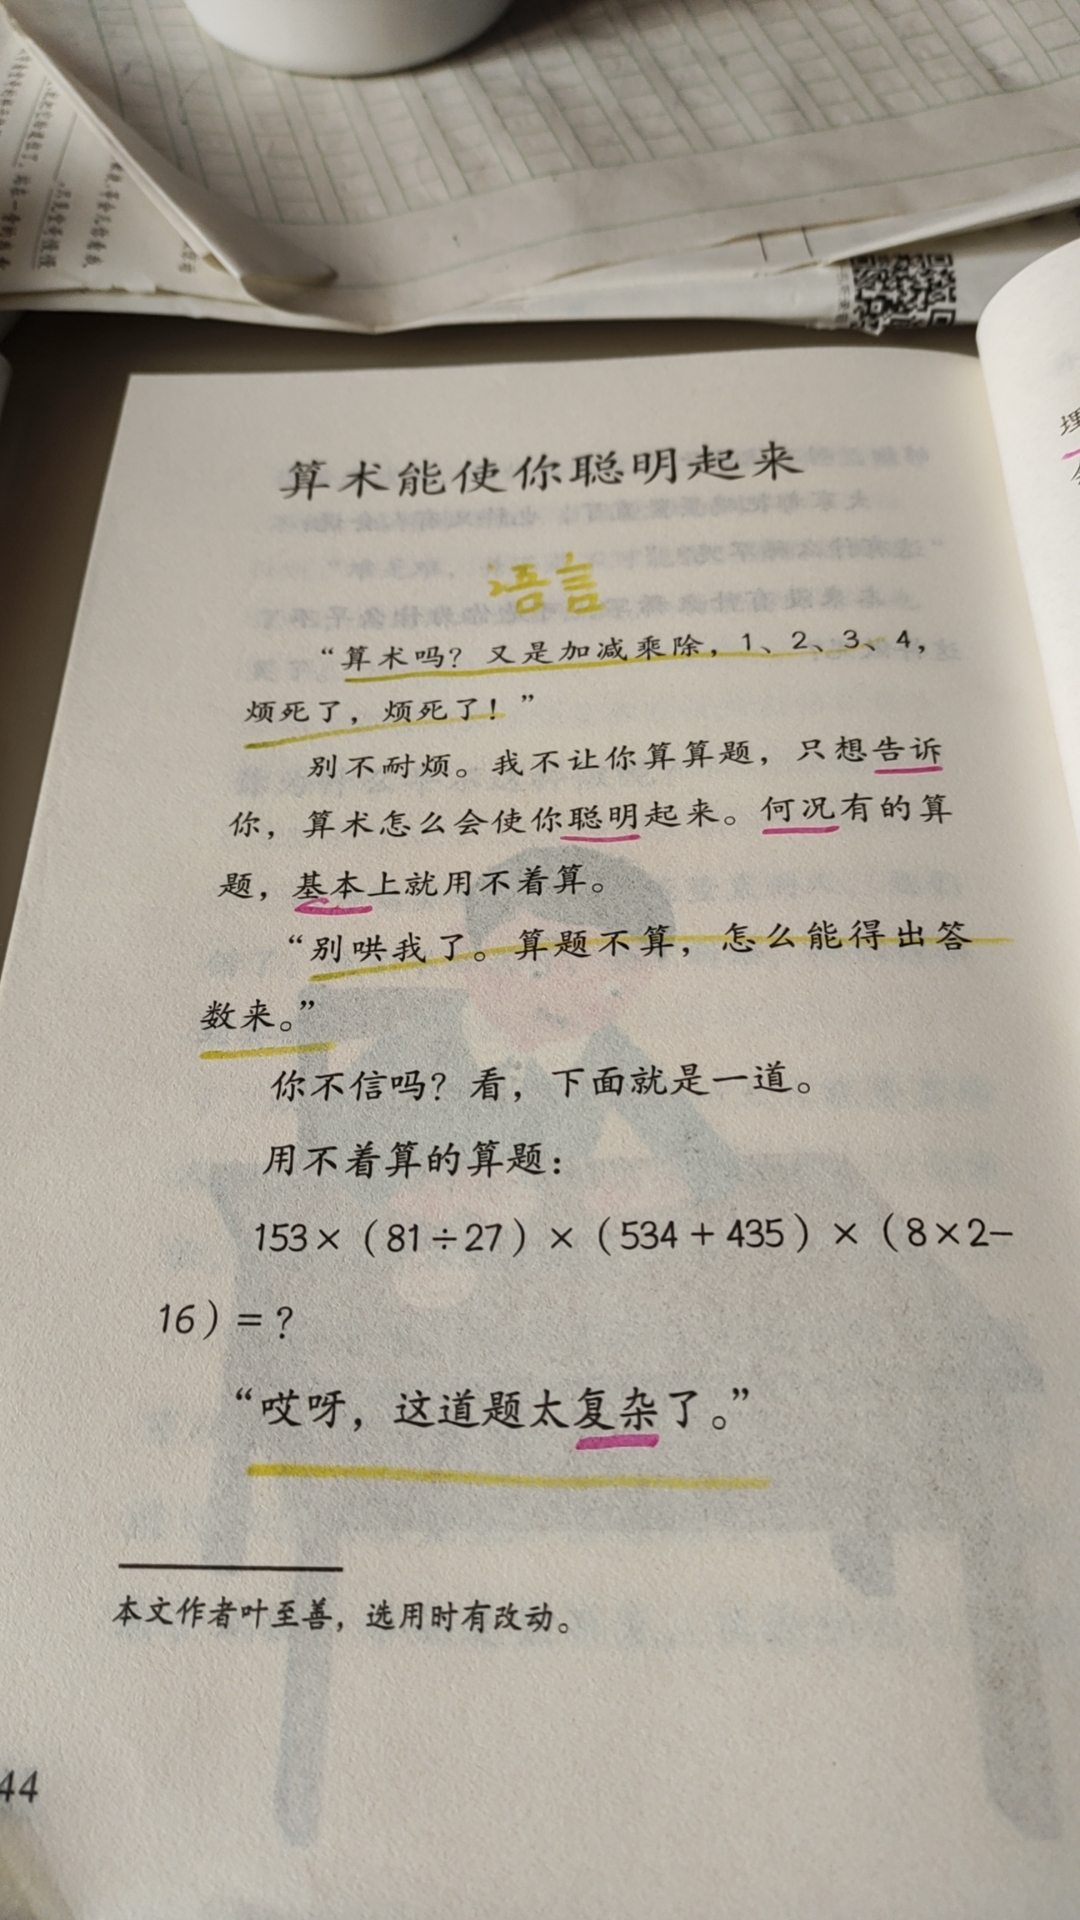 算术能使你聪明起来
语言
“算术吗？又是加减乘除，1、2、3、4，
烦死了，烦死了！”
别不耐烦。我不让你算算题，只想告诉
你，算术怎么会使你聪明起来。何况有的算
题，基本上就用不着算。
“别哄我了。算题不算，怎么能得出答
数来。”
你不信吗？看，下面就是一道。
用不着算的算题：
153×（81÷27）×（534＋435）×（8×2－
16）＝？
“哎呀，这道题太复杂了。”
本文作者叶至善，选用时有改动。
44